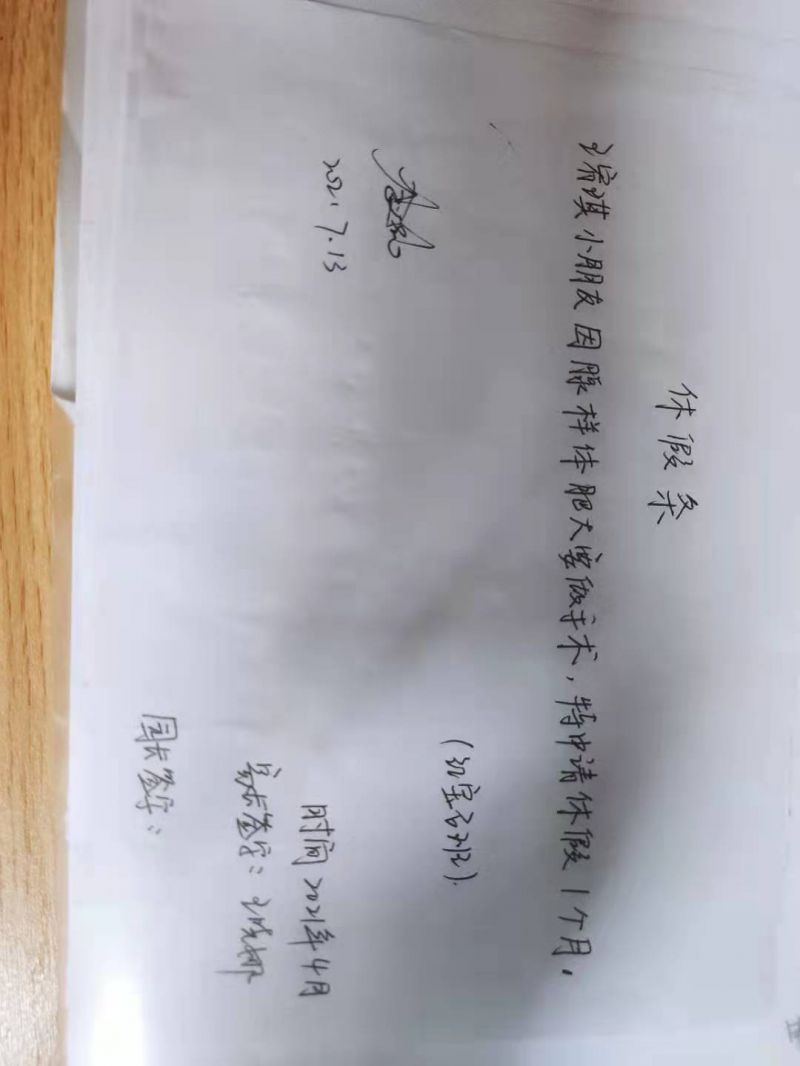 休假条
王睿淇小朋友因腺样体肥大要做手术，特申请休假1个月。
（红宝石班）.
时间 2021年4月
家长签字：王晓娜
园长签字：
2021.7.13